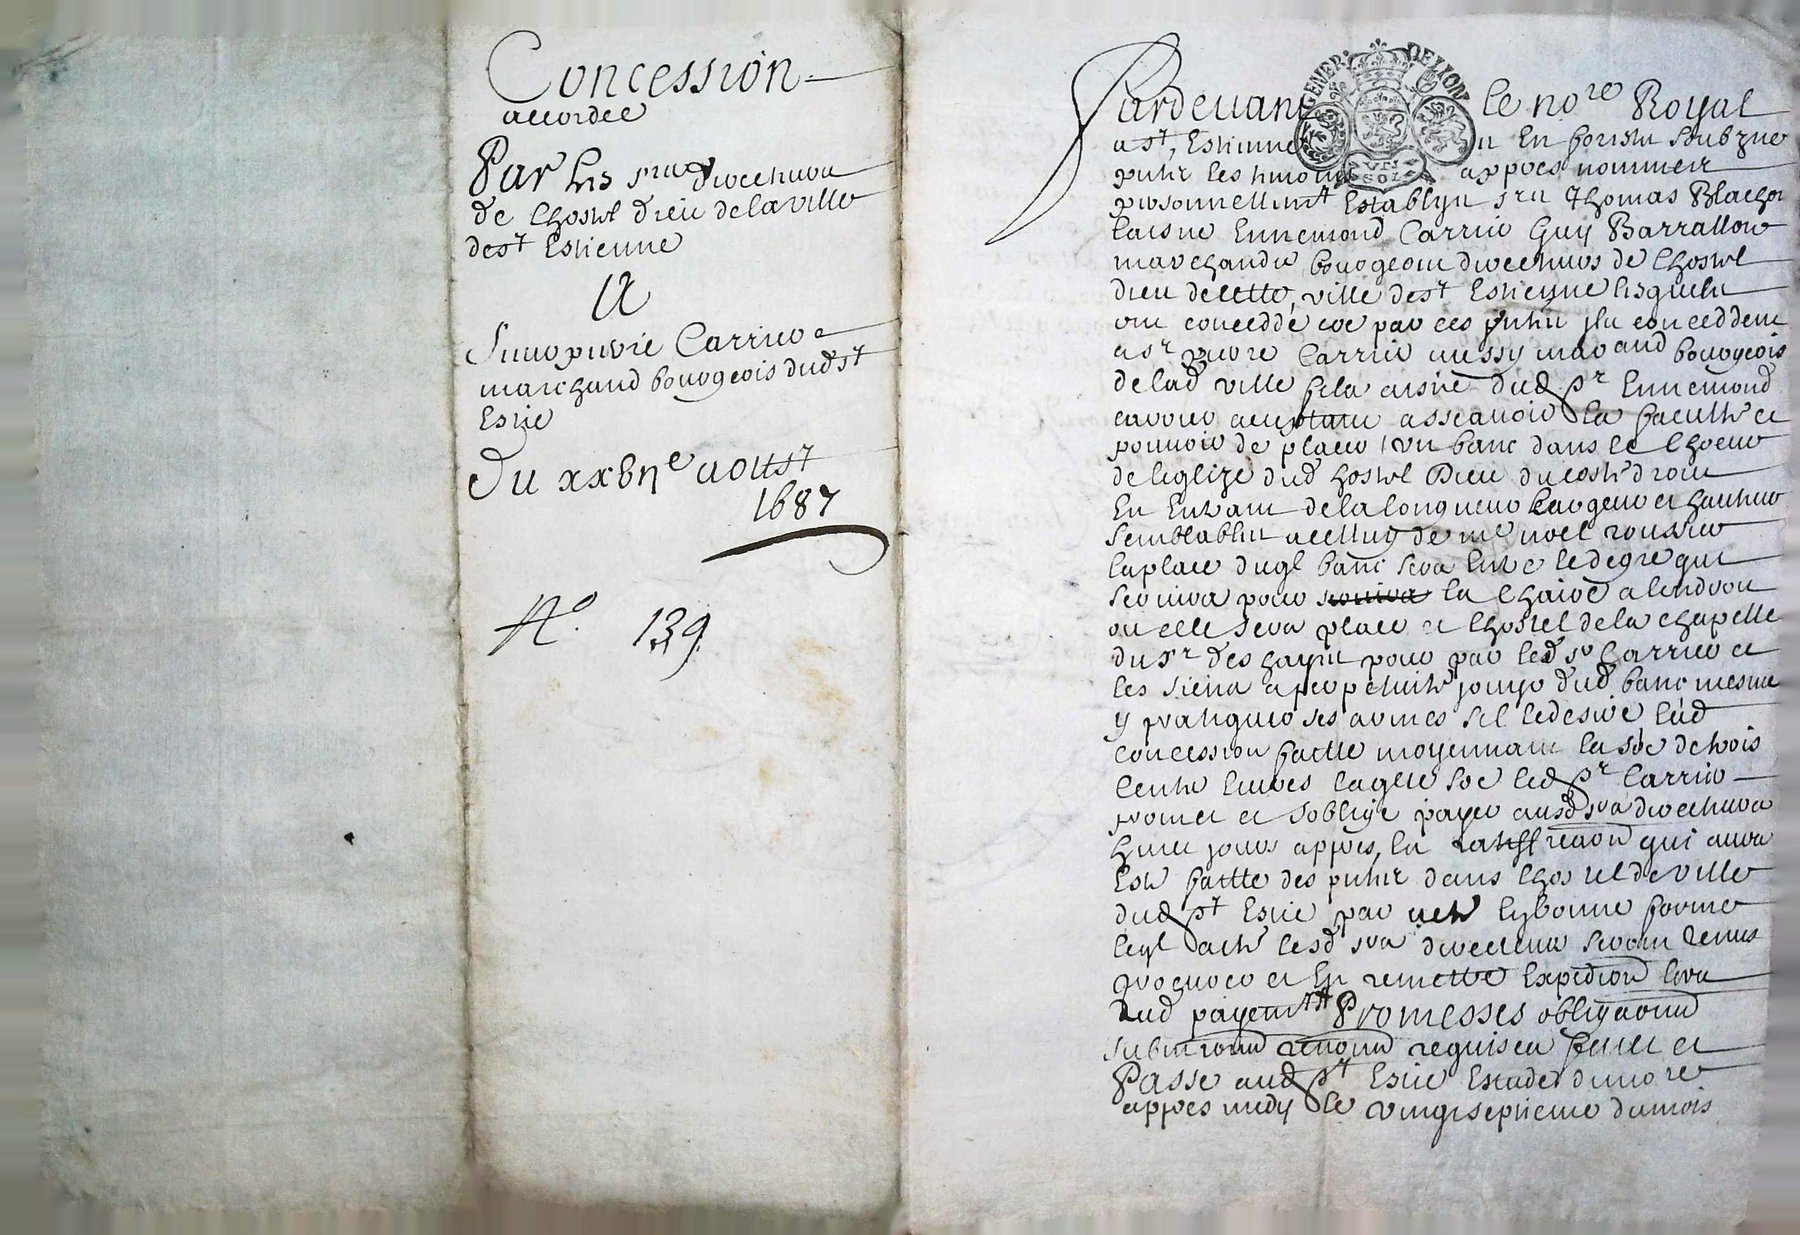 Concession
accordee
Par les srs directeurs
de lhostel dieu de la ville
de st Estienne
A
Sieur pierre Carrier
marchand bourgeois dud st
Estie
Du xxvije aoust
1687
No. 139.
GENER DE LION
Pardevant le nore Royal
a st, Estienne en forestz soubzne
pnte les tesmoins appres nommeez
personnellemt Establys srs Thomas Blachon
laisne Ennemond Carrier Guy Barrallon
marchands bourgeois directeurs de lhostel
dieu de cette, ville de st Estienne lesquels
ont conceddé et par ces pntes ils conceddent
a sr pierre Carrier aussy marand bourgeois
de lad ville fils aisné dud sr Ennemond
carrier acceptant asscavoir la faculte et
pouvoir de placer un banc dans le choeur
de leglize dud hostel Dieu du coste droit
En Entrant de la longueur largeur et hauteur
semblables a celluy de me noel roussier
la place duql banc sera entre le degre qui
servira pour la chaire a lendroit
ou elle sera place et lhostel de la chapelle
du sr des hayes pour par led sr Carrier et
les siens a perpetuite jouyr dud banc mesme
y pratiquer ses armes sil le desire lad
concession faitte moyennant la soe de trois
cents livres laqlle soe led sr Carrier
promet et soblige payer ausd srs directeurs
huict jours appres, la ratiffication qui aura
Este faitte des pntes dans lhostel de ville
dud st Estie par acte en bonne forme
leql acte lesd srs directeurs seront tenus
procurer et En remettre Expedion lors
dud payemt Promesses obligaons
submissions renons requises faict et
Passe aud st Estie Estude du nore
appres midy le vingtseptieme du mois